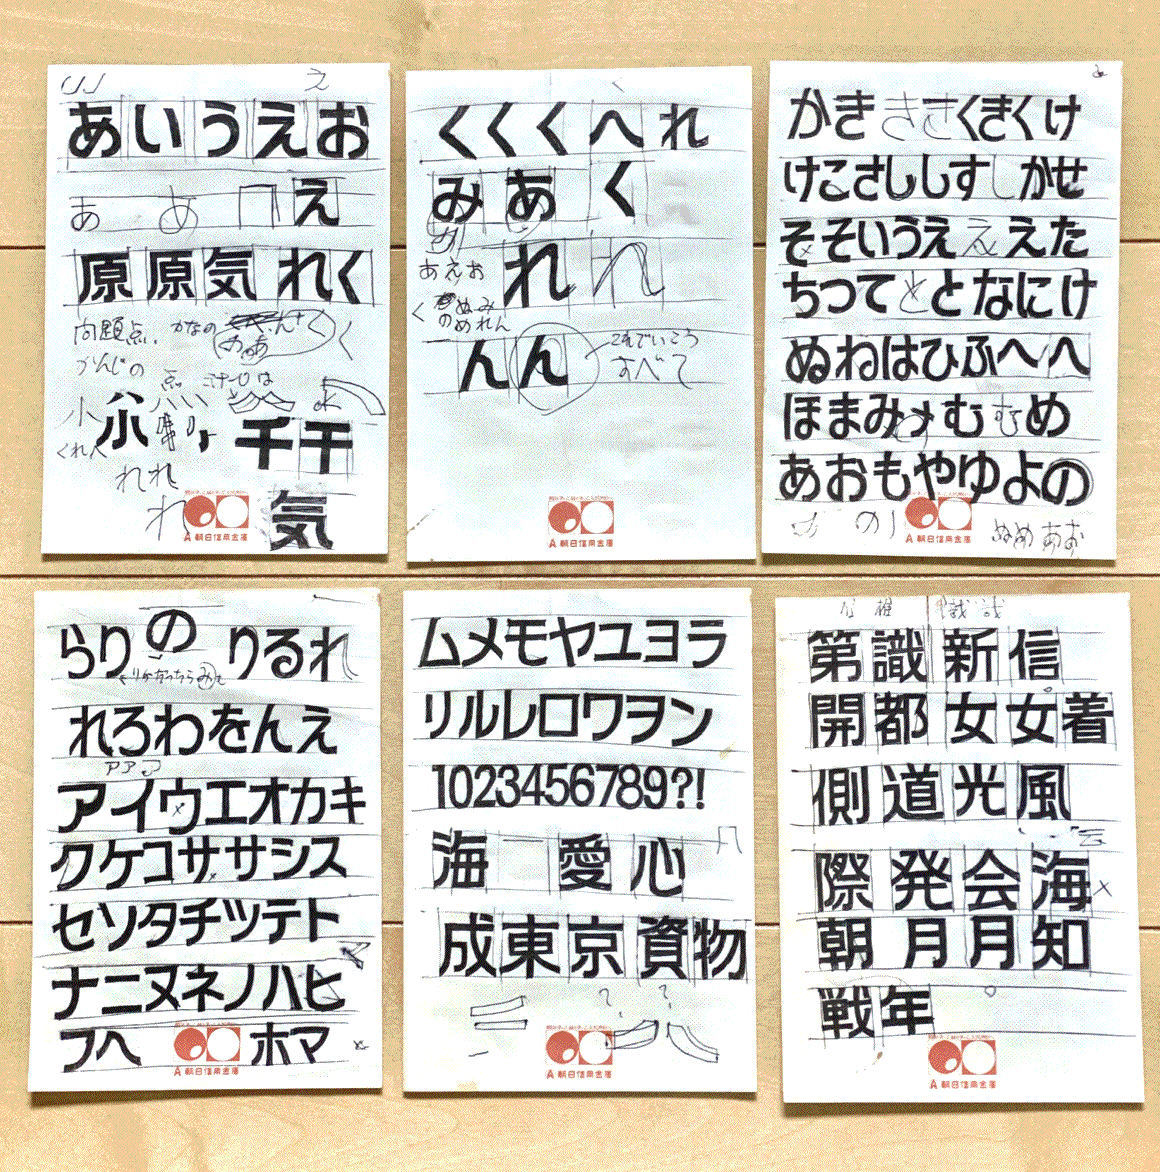 え
あいうえお
ああえ
原原気れく
問題点. かなの
かんじの
小小
千千
くれへ
れれ
れ
気
朝日信用金庫
くくくへれ
みあく
あえお
れれ
くぬみ
のめれん
んん
これでいこう
すべて
朝日信用金庫
かききさくきくけ
けこさししすしかせ
そそいうええええた
ちつてととなにけ
ぬねはひふへへ
ほまみメむむめ
あおもやゆよの
の
ぬめあお
朝日信用金庫
らりのりるれ
れろわをんえ
アア
アイウエオカキ
クケコササシス
セソタチツテト
ナニヌネノハヒ
フヘホマ
朝日信用金庫
ムメモヤユヨラ
リルレロワヲン
1023456789?!
海愛心
成東京資物
? ?
朝日信用金庫
第識新信
開都女女着
側道光風
際発会海
朝月月知
戦年
朝日信用金庫